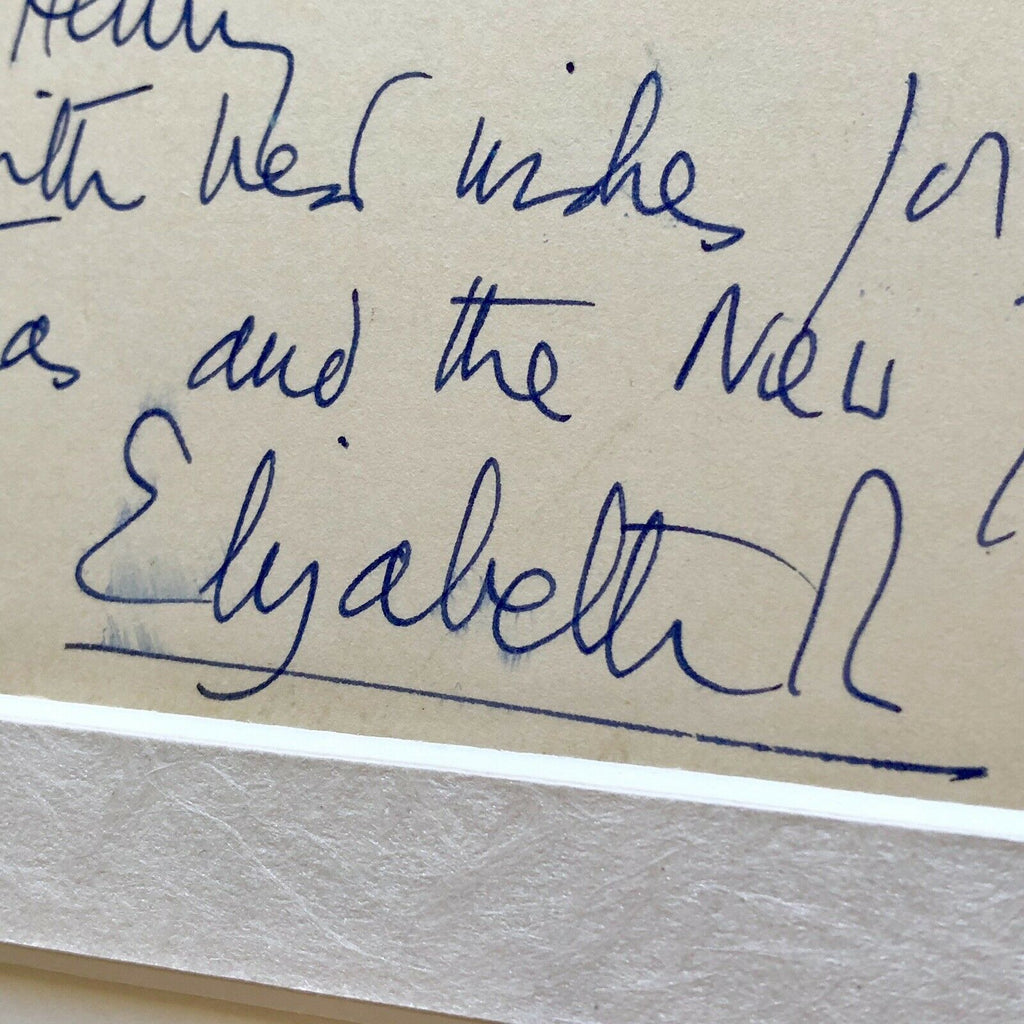 Henry
with best wishes for
as and the New
Elizabeth R